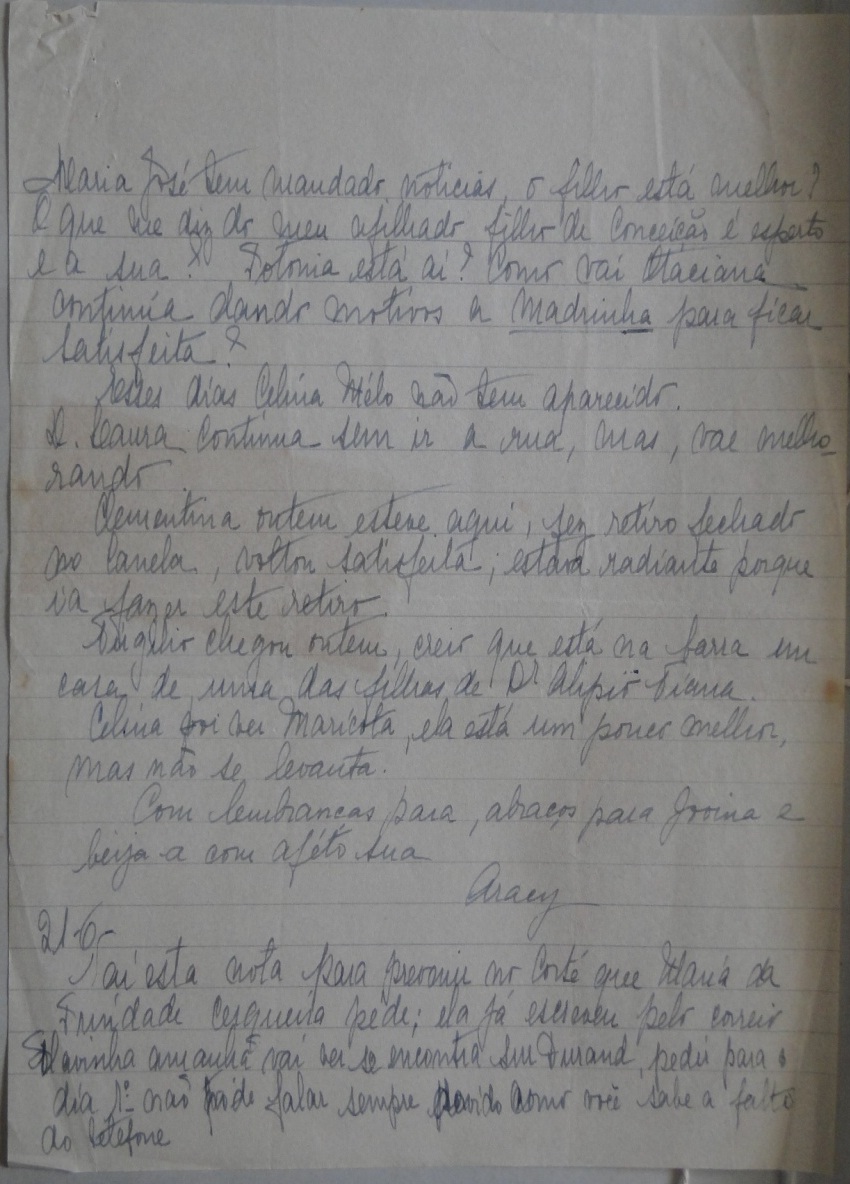 Maria José tem mandado noticias, o filho está melhor?
O que me diz do meu afilhado filho de Conceição é esperto
e a sua? Totonia está aí? Como vai Otaciana
continúa dando motivos a Madrinha para ficar
satisfeita?
Estes dias Celina Mélo não tem aparecido.
D. Laura continua sem ir a rua, mas, vae melho-
rando.
Clementina ontem esteve aqui, fez retiro fechado
no Canela, voltou satisfeita; estava radiante porque
ia fazer este retiro.
Virgilio chegou ontem, creio que está na barra em
casa de uma das filhas de Dr Alipio Viana.
Celina foi ver Maricota, ela está um pouco melhor,
mas não se levanta.
Com lembranças para, abraços para Jovina e
beija-a com aféto sua
Aracy
21-6-
Vai esta nota para prevenir no Corte que Maria da
Trindade Cerqueira péde; ela já escreveu pelo correio
amanhã vai ver se encontra Durand, pediu para o
dia 1º não póde falar sempre devido como você sabe a falta
do telefone